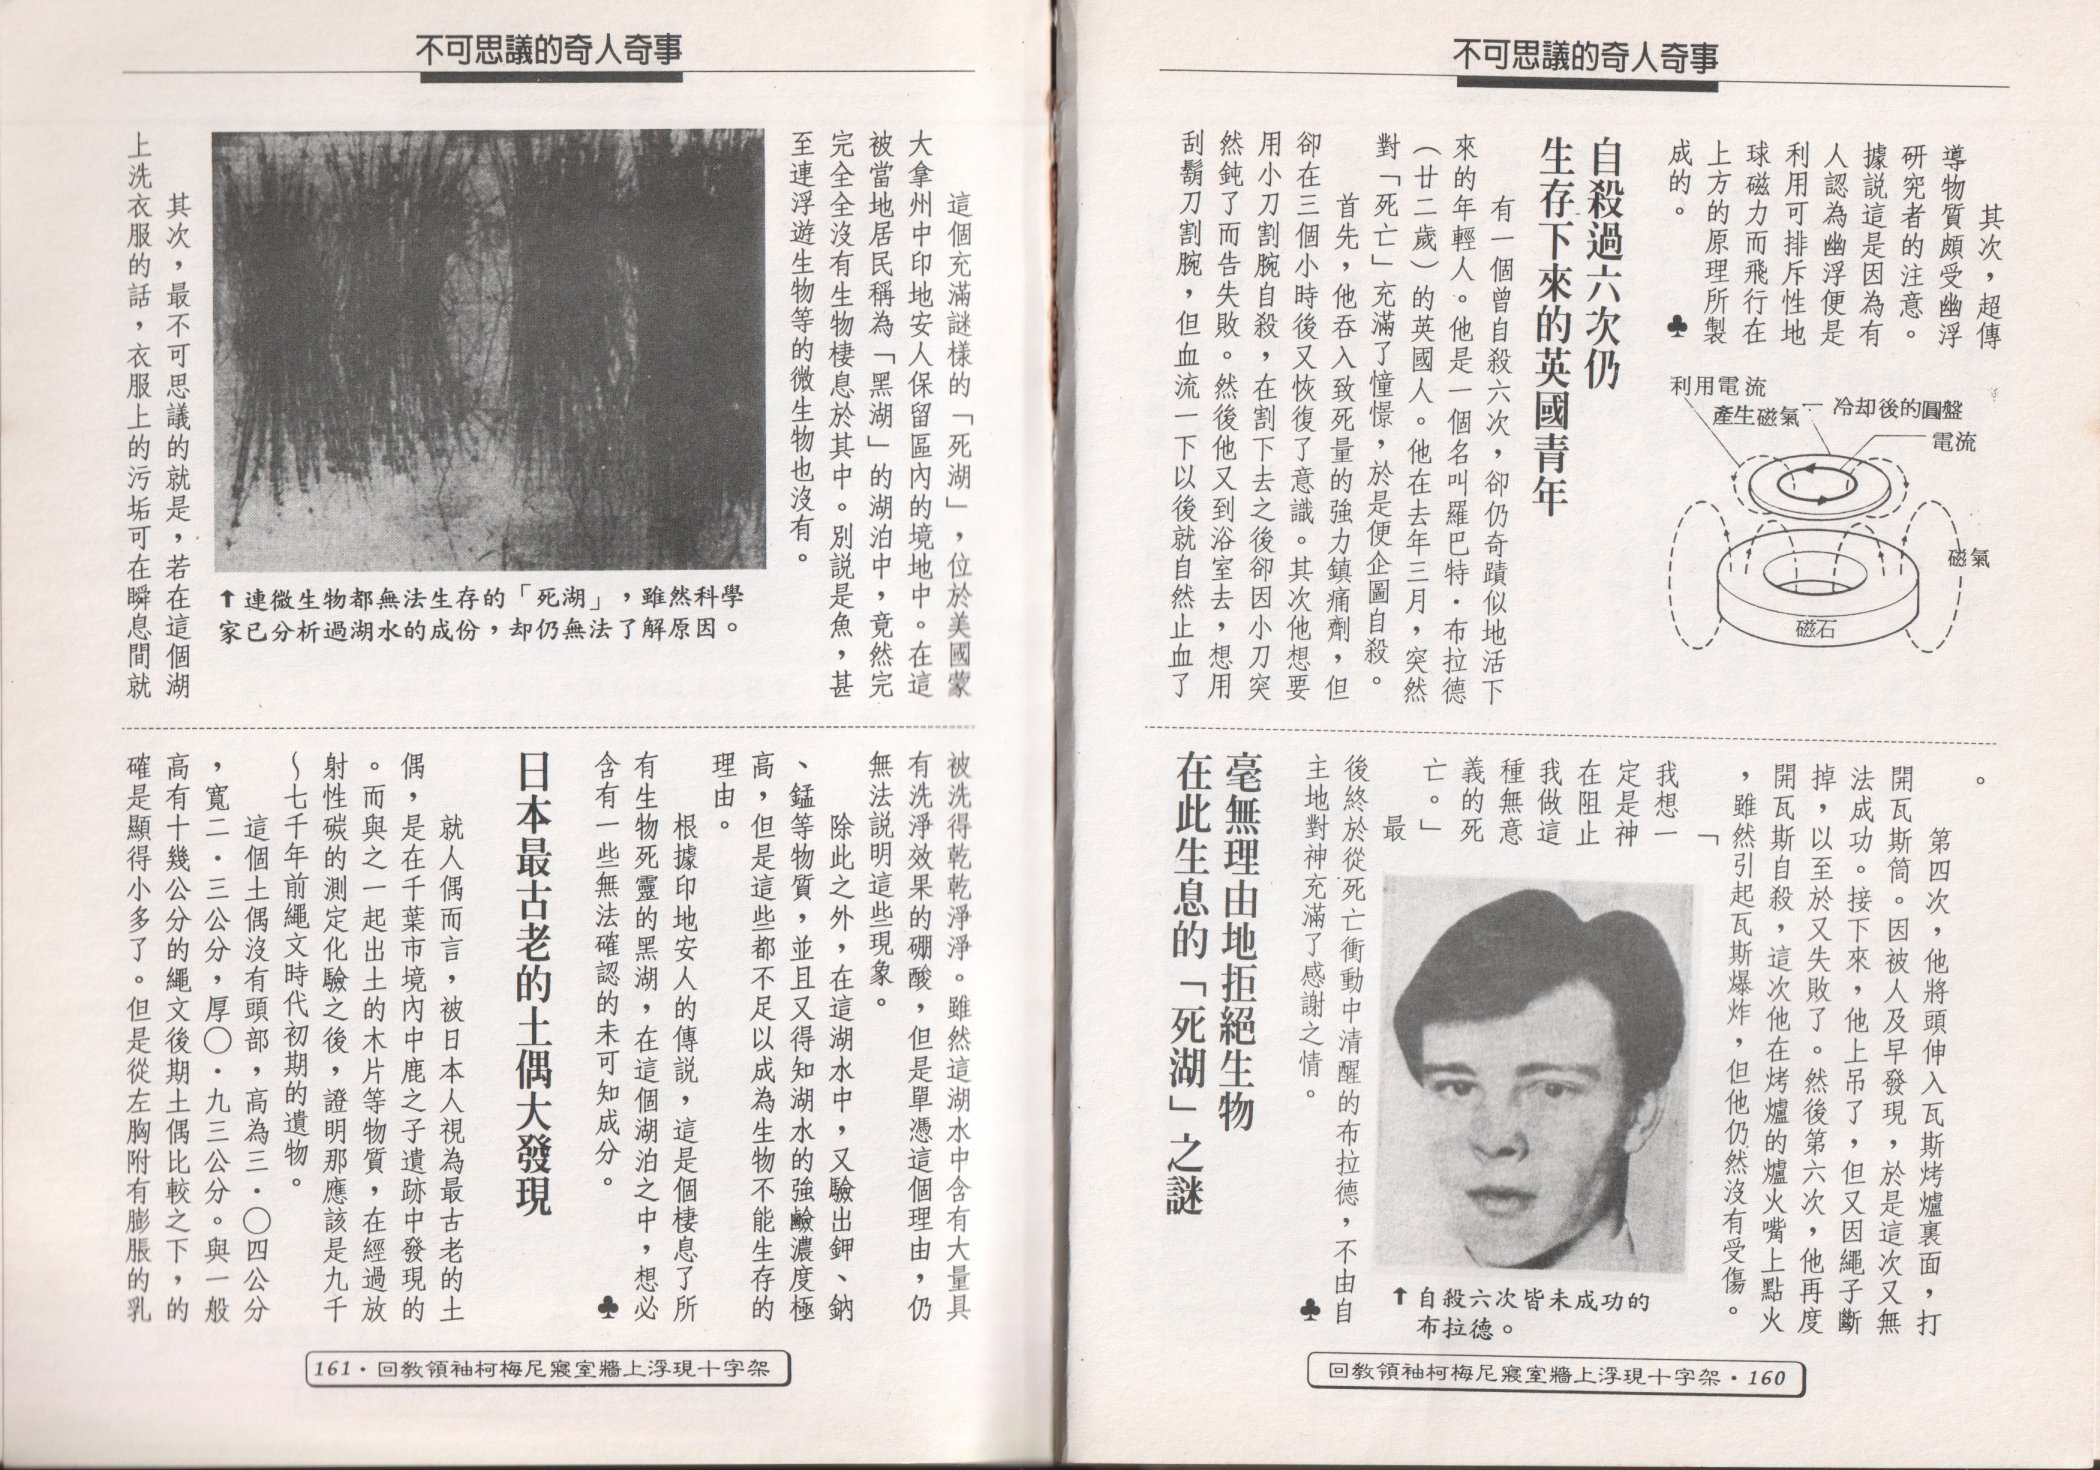 不可思議的奇人奇事
其次，超傳
導物質頗受幽浮
研究者的注意。
據說這是因為有
人認為幽浮便是
利用可排斥性地
球磁力而飛行在
上方的原理所製
成的。♣
利用電流
產生磁氣
冷却後的圓盤
電流
磁氣
磁石
自殺過六次仍
生存下來的英國青年
有一個曾自殺六次，卻仍奇蹟似地活下
來的年輕人。他是一個名叫羅巴特·布拉德
（廿二歲）的英國人。他在去年三月，突然
對「死亡」充滿了憧憬，於是便企圖自殺。
首先，他吞入致死量的強力鎮痛劑，但
卻在三個小時後又恢復了意識。其次他想要
用小刀割腕自殺，在割下去之後卻因小刀突
然鈍了而告失敗。然後他又到浴室去，想用
刮鬍刀割腕，但血流一下以後就自然止血了
。
第四次，他將頭伸入瓦斯烤爐裏面，打
開瓦斯筒。因被人及早發現，於是這次又無
法成功。接下來，他上吊了，但又因繩子斷
掉，以至於又失敗了。然後第六次，他再度
開瓦斯自殺，這次他在烤爐的爐火嘴上點火
，雖然引起瓦斯爆炸，但他仍然沒有受傷。
「
我想一
定是神
在阻止
我做這
種無意
義的死
亡。」
最
後終於從死亡衝動中清醒的布拉德，不由自
主地對神充滿了感謝之情。♣
⬆自殺六次皆未成功的
布拉德。
毫無理由地拒絕生物
在此生息的「死湖」之謎
回教領袖柯梅尼寢室牆上浮現十字架·160
不可思議的奇人奇事
這個充滿謎樣的「死湖」，位於美國蒙
大拿州中印地安人保留區內的境地中。在這
被當地居民稱為「黑湖」的湖泊中，竟然完
完全全沒有生物棲息於其中。別說是魚，甚
至連浮遊生物等的微生物也沒有。
⬆連微生物都無法生存的「死湖」，雖然科學
家已分析過湖水的成份，却仍無法了解原因。
其次，最不可思議的就是，若在這個湖
上洗衣服的話，衣服上的污垢可在瞬息間就
被洗得乾乾淨淨。雖然這湖水中含有大量具
有洗淨效果的硼酸，但是單憑這個理由，仍
無法說明這些現象。
除此之外，在這湖水中，又驗出鉀、鈉
、錳等物質，並且又得知湖水的強鹼濃度極
高，但是這些都不足以成為生物不能生存的
理由。
根據印地安人的傳說，這是個棲息了所
有生物死靈的黑湖，在這個湖泊之中，想必
含有一些無法確認的未可知成分。♣
日本最古老的土偶大發現
就人偶而言，被日本人視為最古老的土
偶，是在千葉市境內中鹿之子遺跡中發現的
。而與之一起出土的木片等物質，在經過放
射性碳的測定化驗之後，證明那應該是九千
～七千年前繩文時代初期的遺物。
這個土偶沒有頭部，高為三·〇四公分
，寬二·三公分，厚〇·九三公分。與一般
高有十幾公分的繩文後期土偶比較之下，的
確是顯得小多了。但是從左胸附有膨脹的乳
161·回教領袖柯梅尼寢室牆上浮現十字架